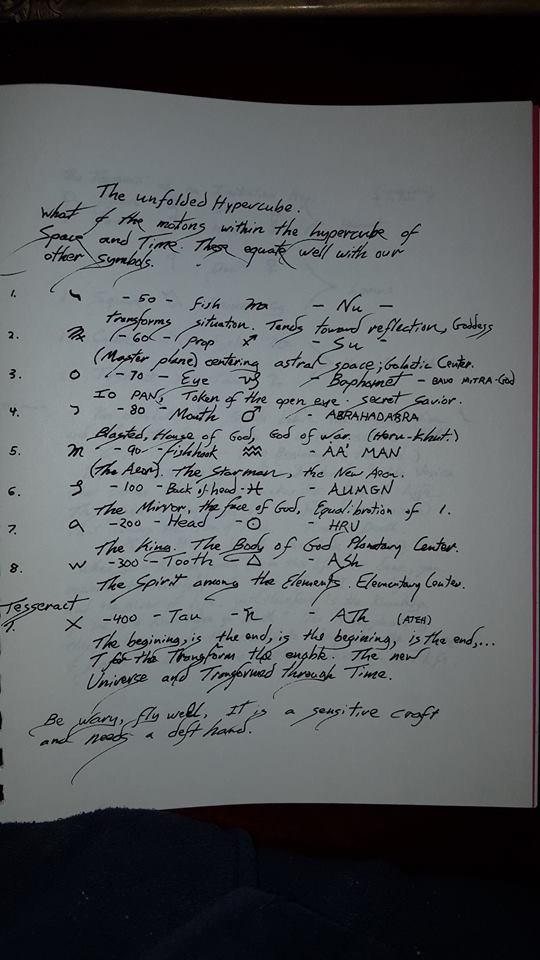 The unfolded Hypercube.
What of the motions within the hypercube of
Space and Time. These equate well with our
other symbols.
1. - 50 - fish ♏ - Nu -
transforms situation. Tends toward reflection, Goddess
2. - 60 - prop ♐ - Su -
(Master plane) centering astral space; Galactic Center.
3. O - 70 - Eye ♑ - Baphomet - MITRA-God
IO PAN, Token of the open eye. secret savior.
4. - 80 - Mouth ♂ - ABRAHADABRA
Blasted, House of God, God of War. (Heru-Khut.)
5. - 90 - Fishhook ♒ - AA' MAN
(The Aeon). The Starman, the New Aeon.
6. - 100 - Back of head - ♓ - AUMGN
The Mirror, the face of God, Equilibration of 1.
7. - 200 - Head - ☉ - HRU
The King. The Body of God Planetary Center.
8. w - 300 - Tooth - △ - ASh
The Spirit among the Elements. Elementary Center.
Tesseract
9. X - 400 - Tau - ♄ - ATh (ATEH)
The begining, is the end, is the begining, is the end,...
T for the Transform the enable. The new
Universe and Transformed through Time.
Be wary, fly well, It is a sensitive craft
and needs a deft hand.